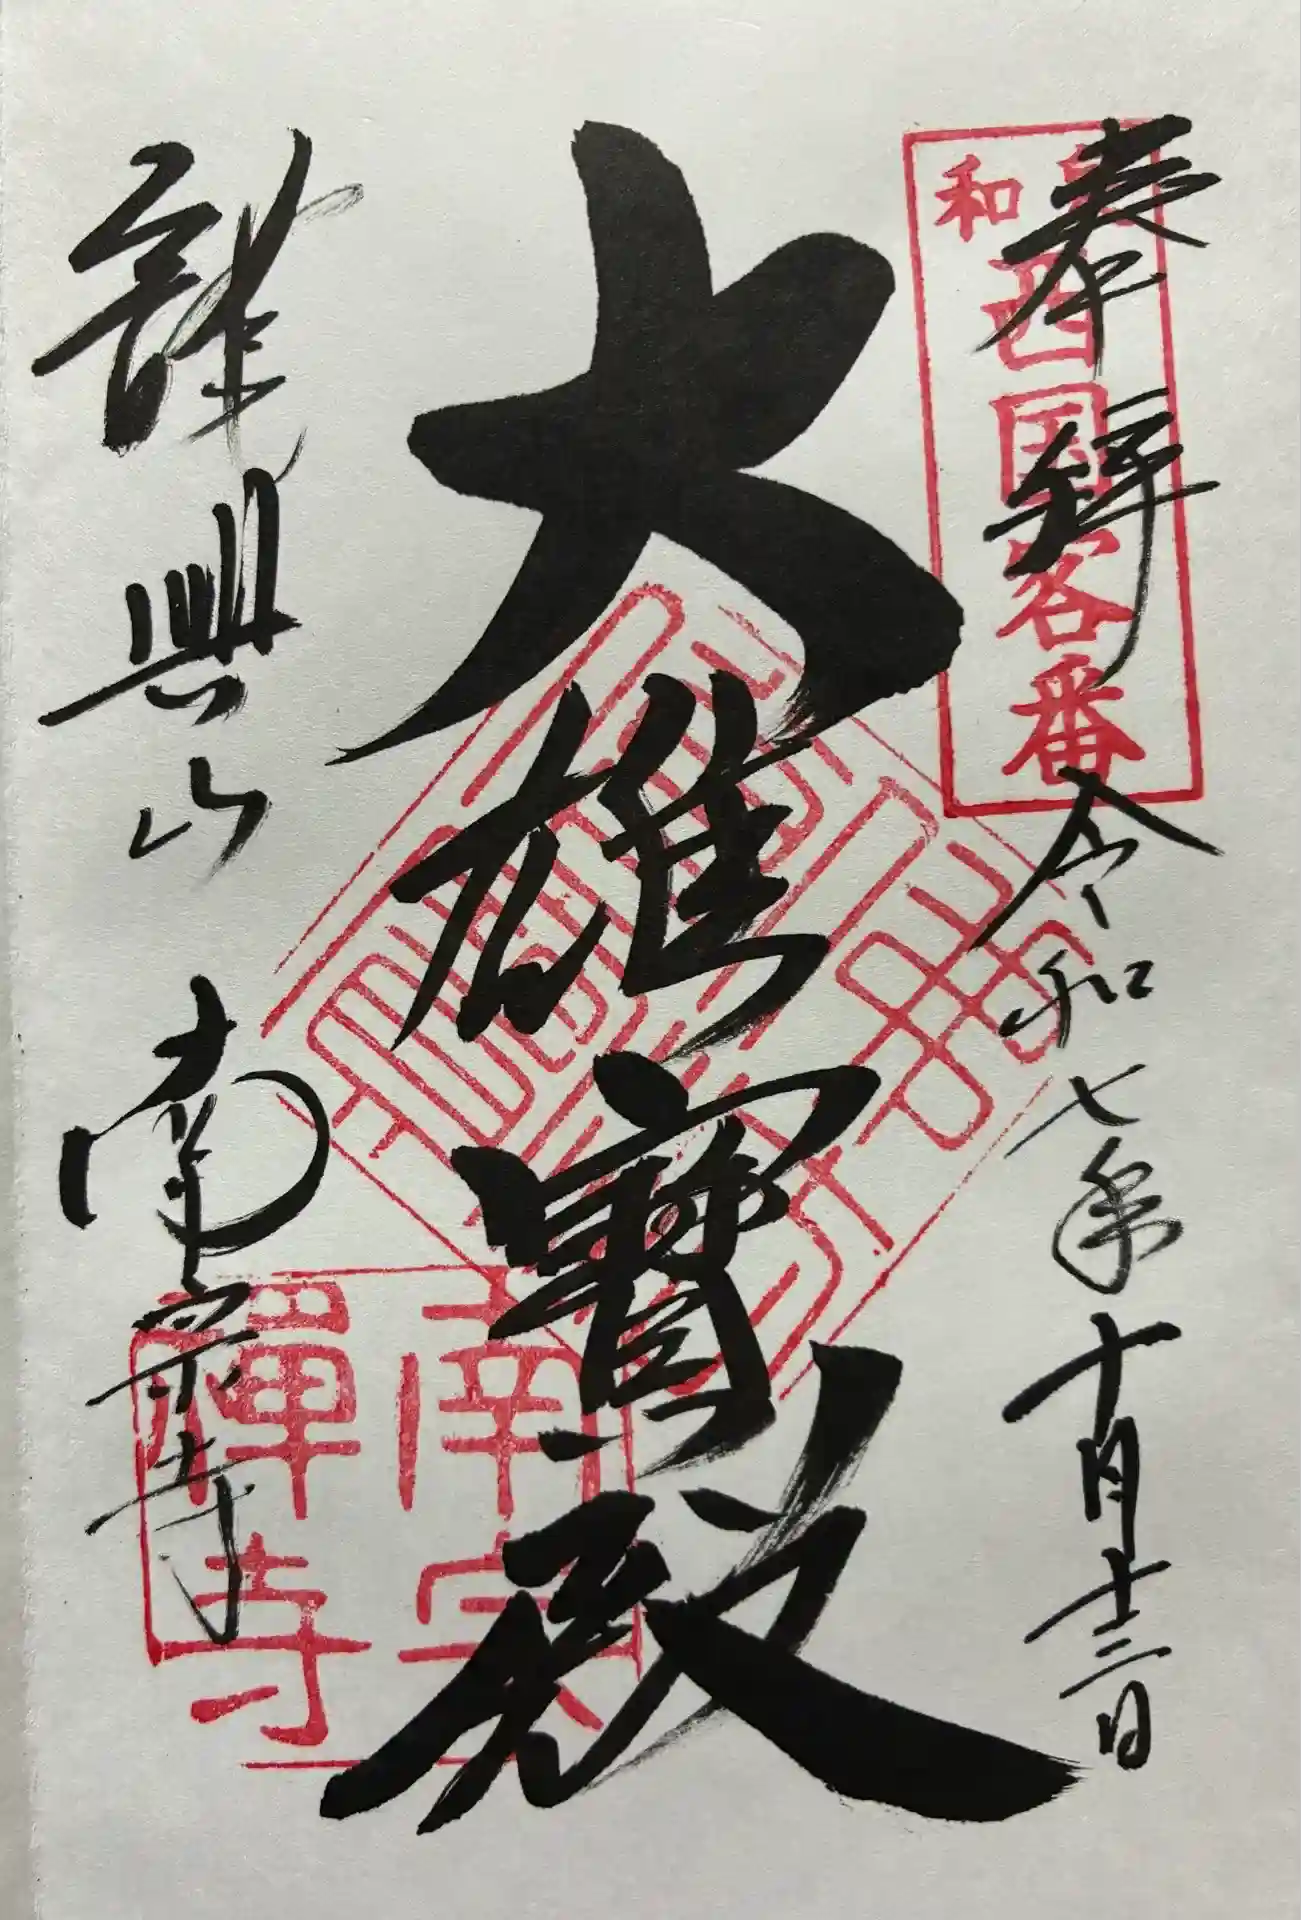 奉拝
令和七年十月十三日
和
西国客番
大雄寳殿
龍興山
南宗寺
南宗
禅寺